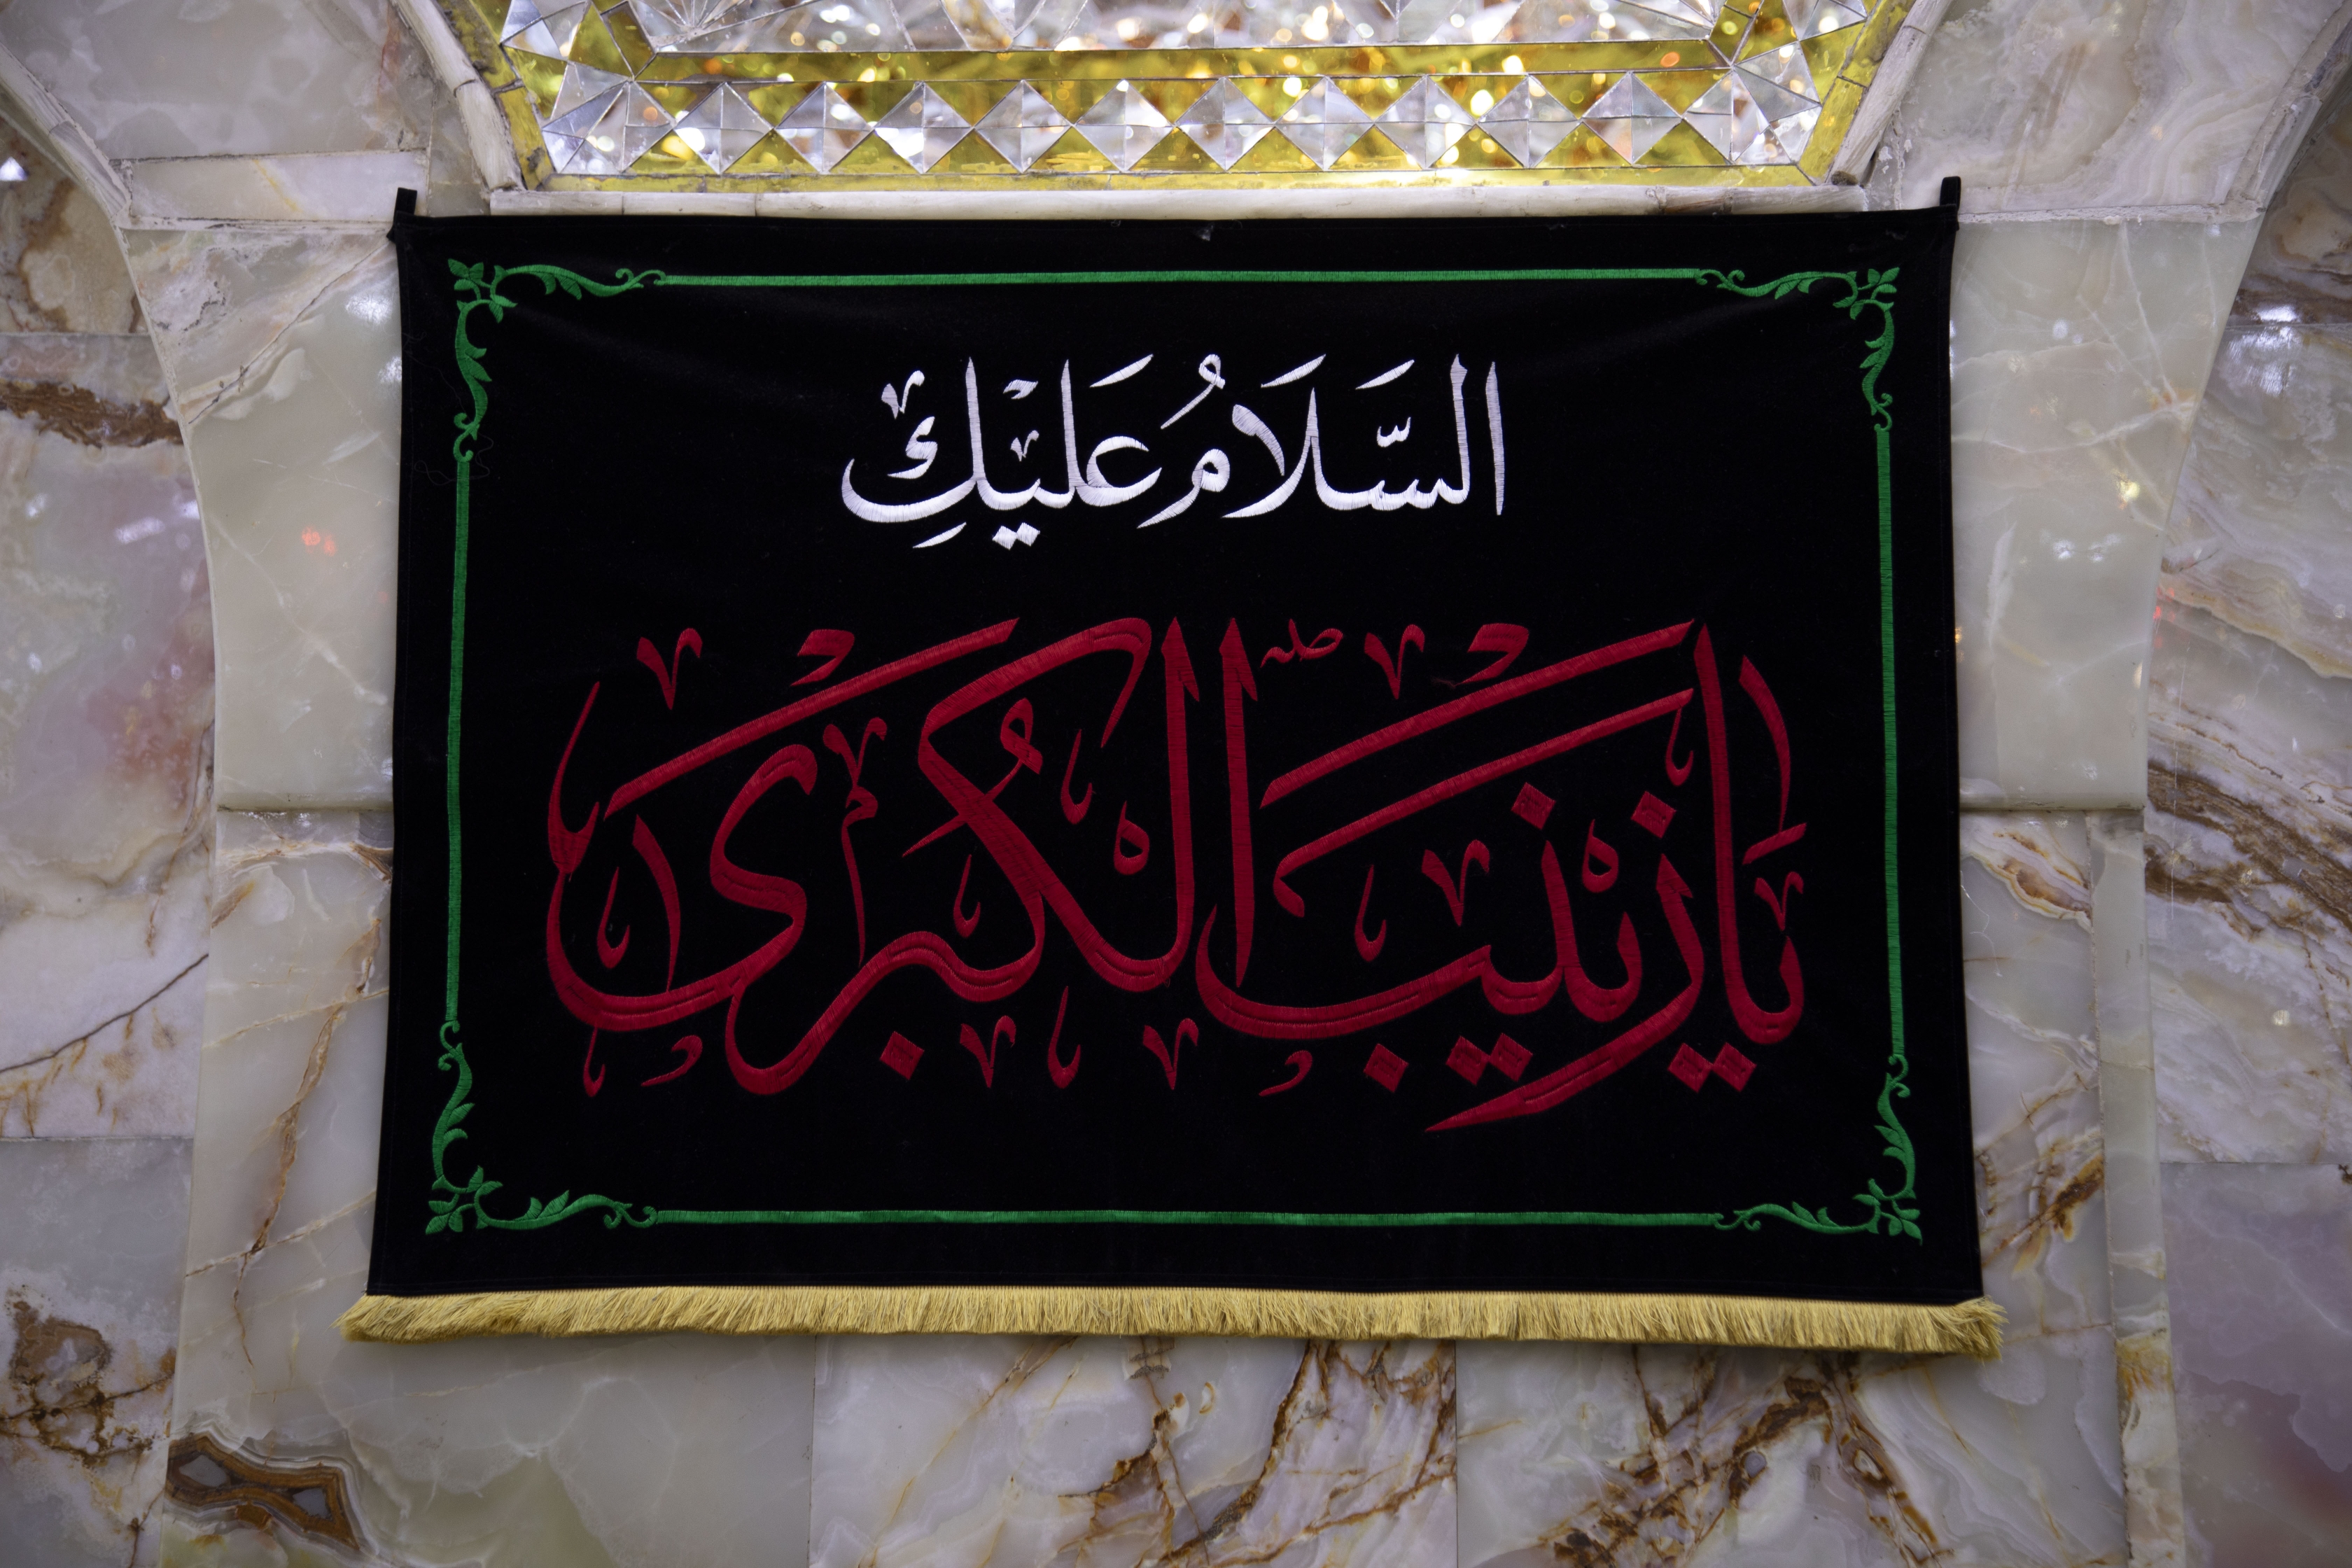 السَّلَامُ عَلَيْكِ
يا زينب الكُبرىٰ